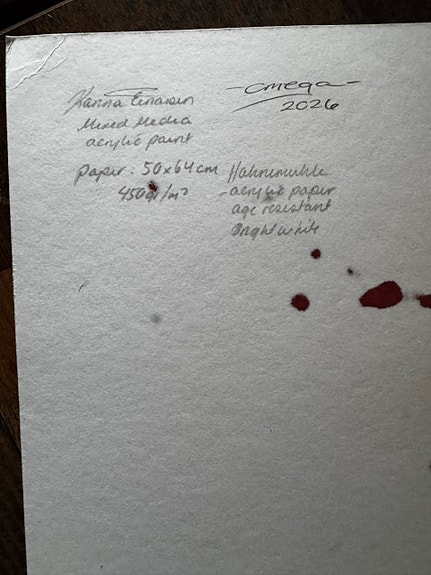 Hanna
Mixed Media
acrylic paint
paper: 50x64cm
450gr/m²
-omega-
2026
Hahnemuhle
-acrylic paper
age resistant
Bright white